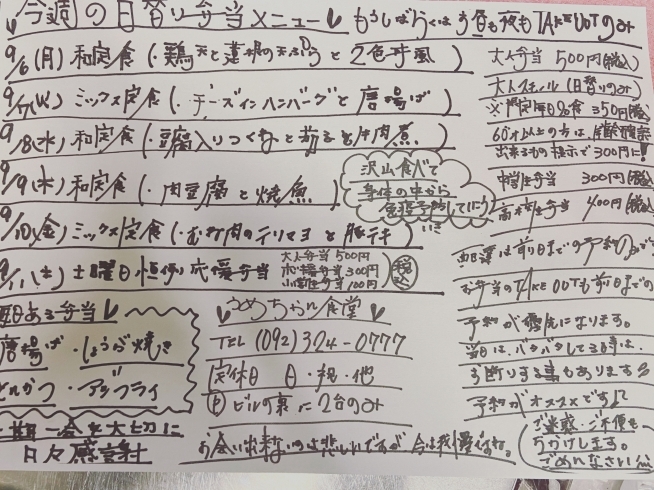 今週の日替り弁当メニュー もうしばらくは
9/6(月) 和定食(・鶏天と蓮根の天ぷらと2色
9/7(火) ミックス定食(・チーズインハンバーグと唐揚げ)
9/8(水) 和定食(・豆腐入りつくねと
9/9(木) 和定食(・肉豆腐と焼魚)
9/10(金) ミックス定食(・むね肉のテリマヨと豚テキ)
9/11(土) 土曜日恒例応援弁当
大人弁当 500円
中高生弁当 300円
小学生弁当 100円
税込
沢山食べて
身体の中から
免疫予防して
大人弁当 500円(税込)
(日替りのみ)
350円(税込)
60才以上の方は
出来るもの提示で300円に!
中学生弁当 300円(税込)
高校生弁当 400円(税込)
配達は前日までの予約のみで
お弁当のTAKE OUTも前日までの
予約が優先になります。
当日は、バタバタしてる時は、
お断りする事もあります
予約がオススメです
ご迷惑・ご不便を
おかけします。
ごめんなさい
毎日ある弁当
唐揚げ・しょうが焼き
とんかつ・アジフライ
一期一会を大切に
日々感謝
うめちゃん食堂
TEL (092)324-0777
定休日 日・祝・他
P ビルの裏に2台のみ
お会い出来ないのは悲しいですが 今は我慢ですね。